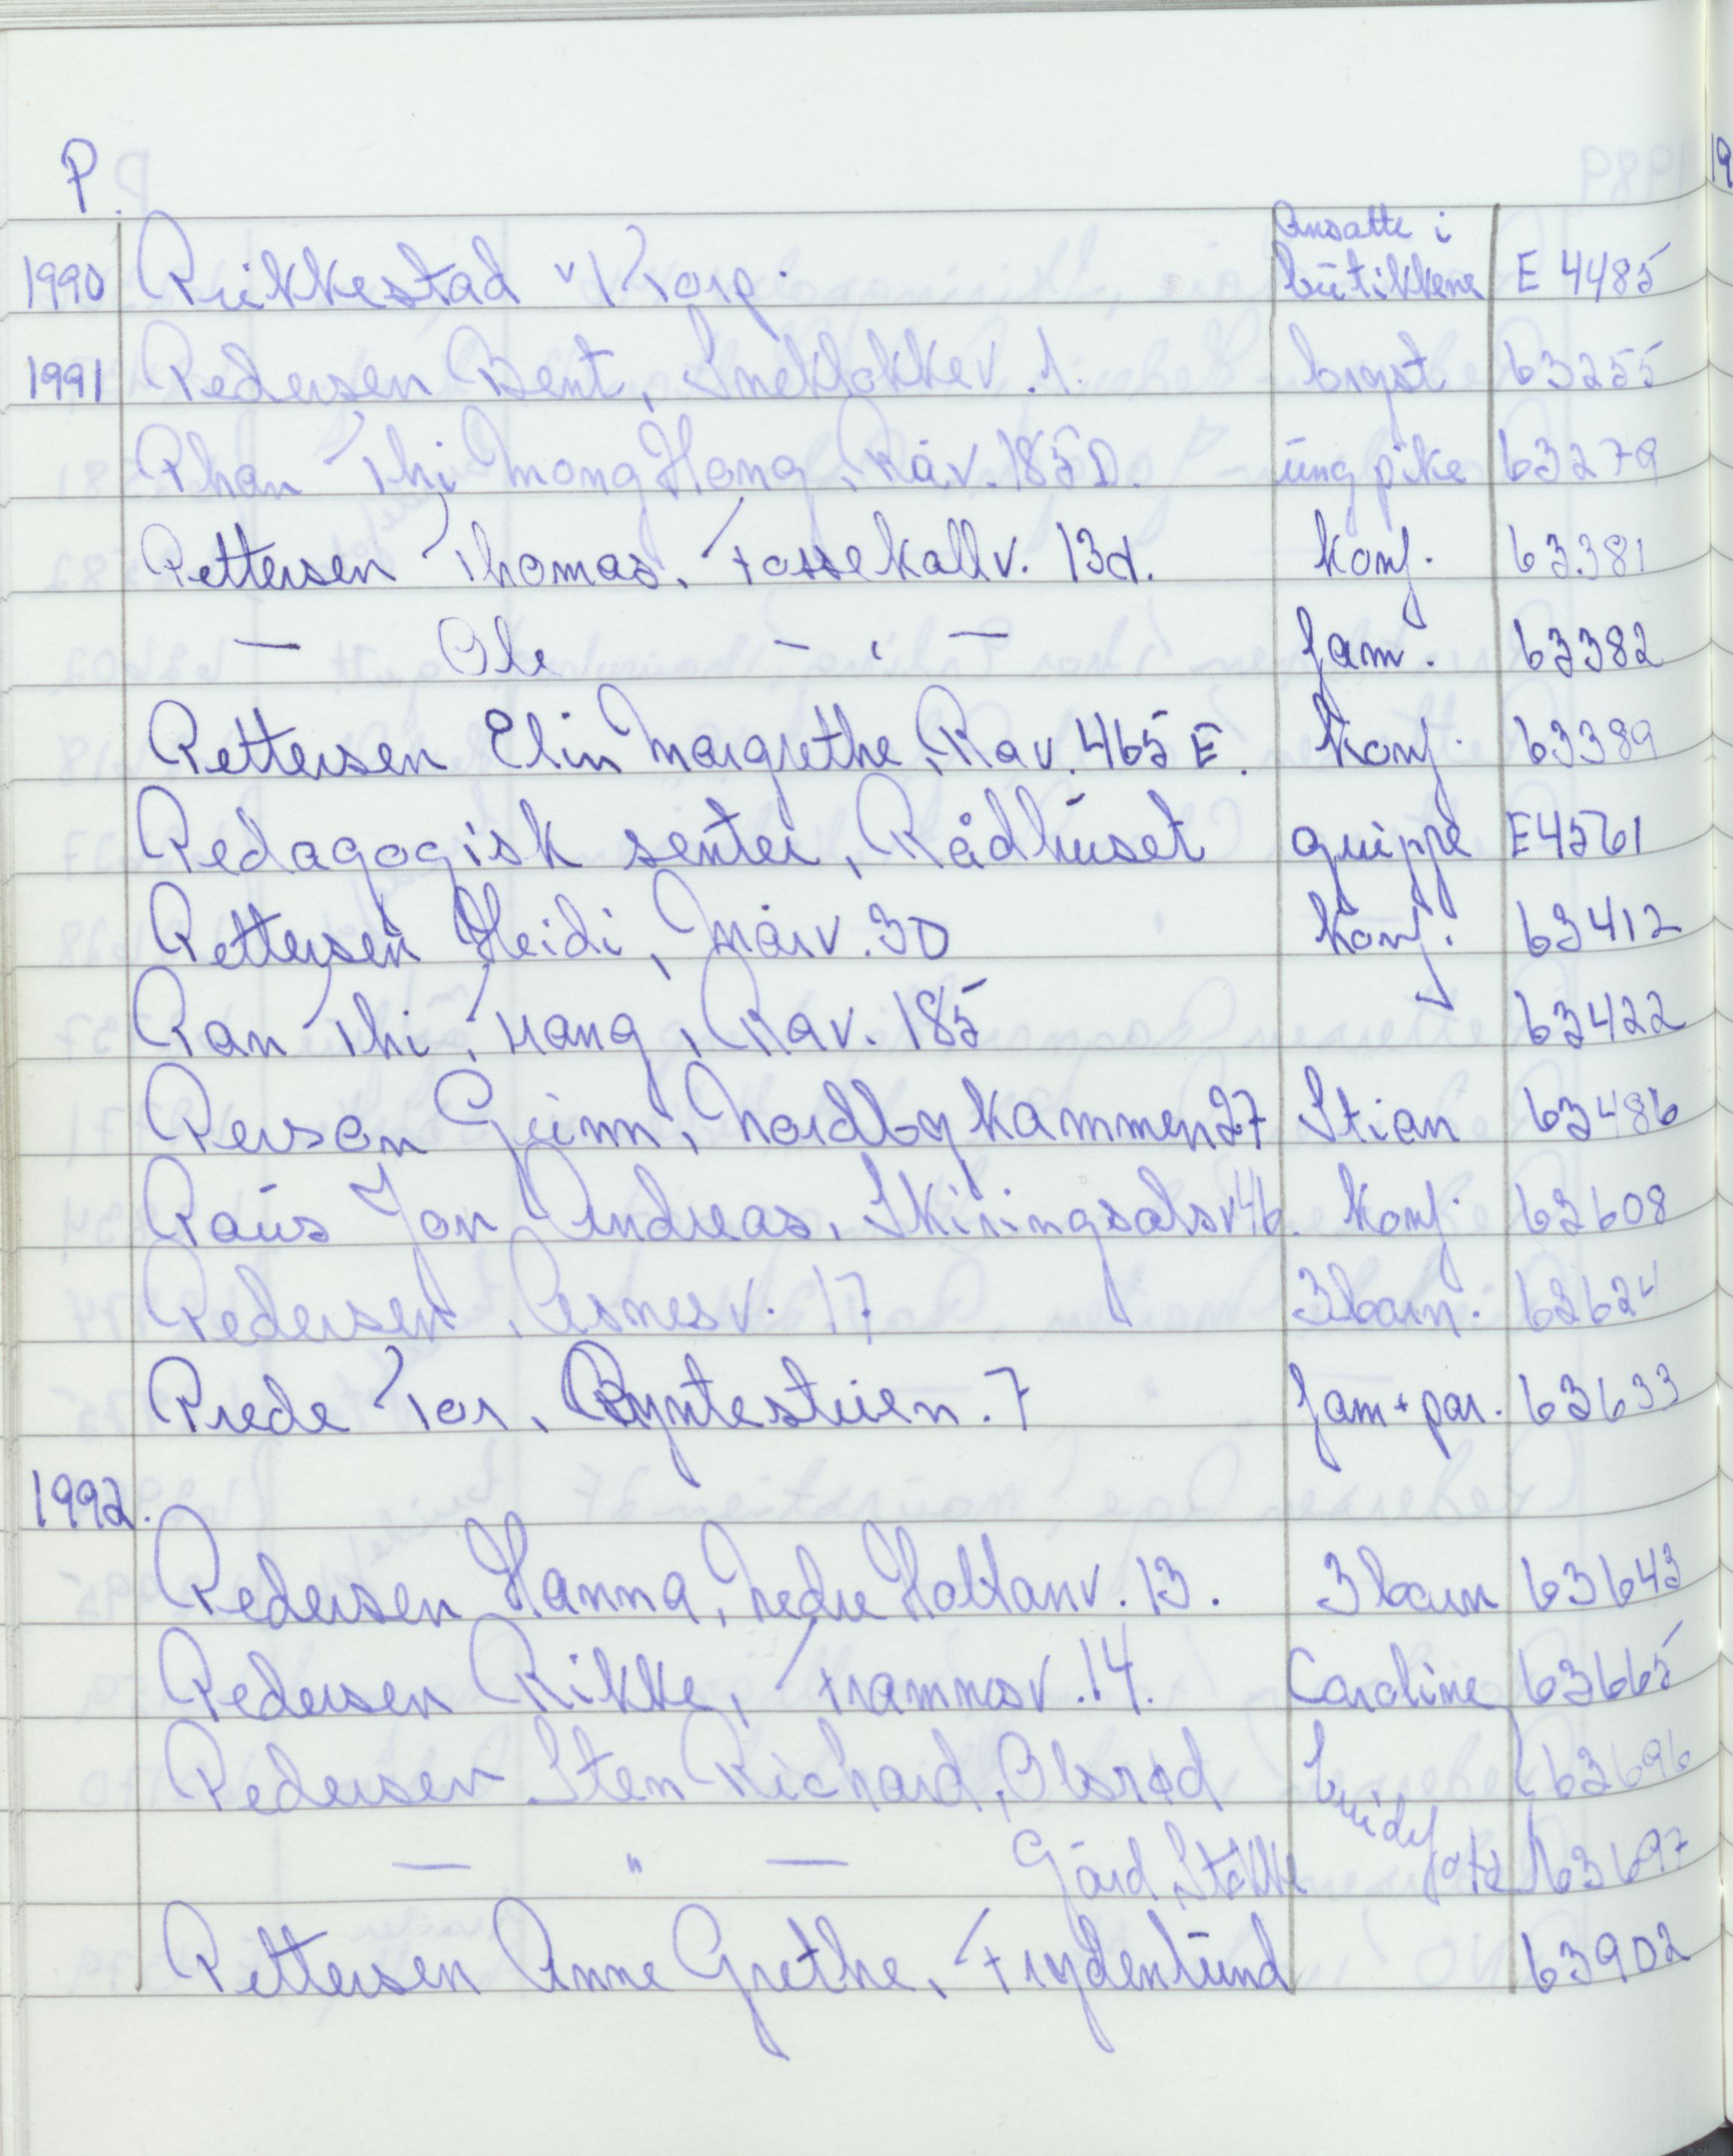 P.
Ansatte i
1990 Prikkestad v/Korp. butikkene E 4485
1991 Pedersen Bent, Sneklokkev. 1. bryst 63255
Phan Thi Mong Hong, Råv. 185D. ung pike 63279
Pettersen Thomas, Fossekallv. 13d. Konf. 63381
— Ole — " — fam. 63382
Pettersen Elin Margrethe, Rav. 465 E. Konf. 63389
Pedagogisk senter, Rådhuset gruppe E4561
Pettersen Heidi, Mårv. 30 Konf. 63412
Pan Thi Trang, Rav. 185 63422
Person Gunn, Nordbykammen 27 Stian 63486
Paus Jon Andreas, Skiringsalsv 46. Konf. 63608
Pedersen, Åsnesv. 17 3 barn. 63624
Prede Tor, Pyntestuen. 7 fam + par. 63633
1992.
Pedersen Hanna, Nedre Holtanv. 13. 3 barn 63643
Pedersen Rikke, Framnesv. 14. Caroline 63665
Pedersen Sten Richard, Olsrød brude 63696
— " — Gård, Stokke foto 63697
Pettersen Anne Grethe, Frydenlund 63902